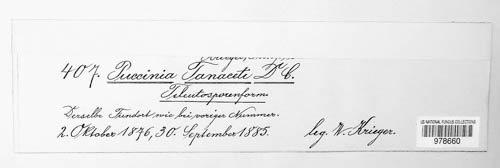 407. Puccinia Tanaceti D C.
Teleutosporenform.
Derselbe Fundort wie bei voriger Nummer.
2. Oktober 1876, 30. September 1885. leg. W. Krieger.
US NATIONAL FUNGUS COLLECTIONS
978660